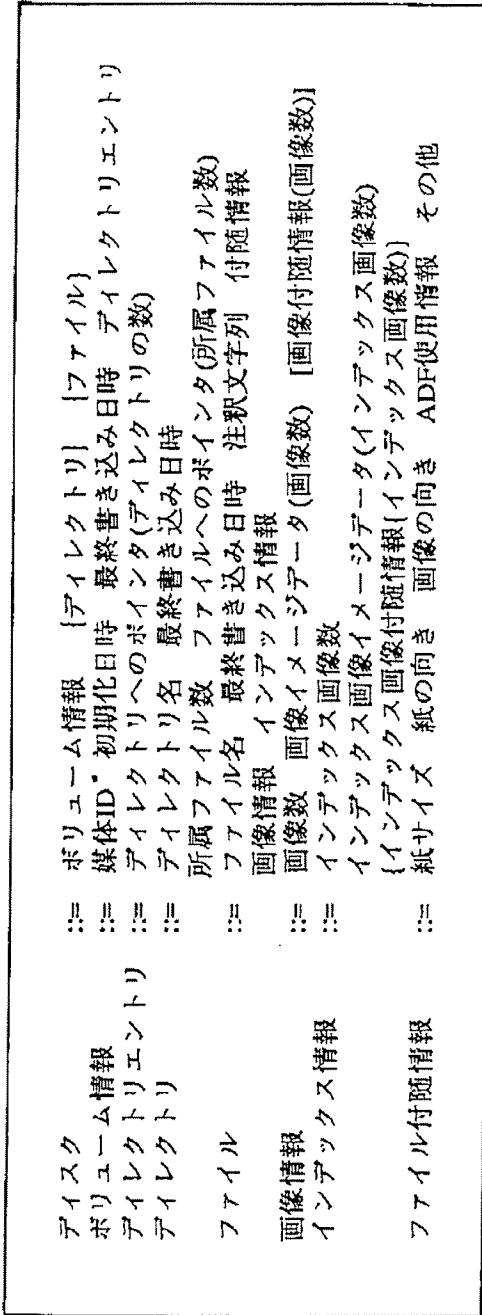 ディスク ::= ボリューム情報 {ディレクトリ} {ファイル}
ボリューム情報 ::= 媒体ID* 初期化日時 最終書き込み日時 ディレクトリエントリ
ディレクトリエントリ ::= ディレクトリへのポインタ(ディレクトリの数)
ディレクトリ ::= ディレクトリ名 最終書き込み日時
所属ファイル数 ファイルへのポインタ(所属ファイル数)
ファイル ::= ファイル名 最終書き込み日時 注釈文字列 付随情報
画像情報 インデックス情報
画像情報 ::= 画像数 画像イメージデータ(画像数) [画像付随情報(画像数)]
インデックス情報 ::= インデックス画像数
インデックス画像イメージデータ(インデックス画像数)
{インデックス画像付随情報{インデックス画像数)]
ファイル付随情報 ::= 紙サイズ 紙の向き 画像の向き ADF使用情報 その他